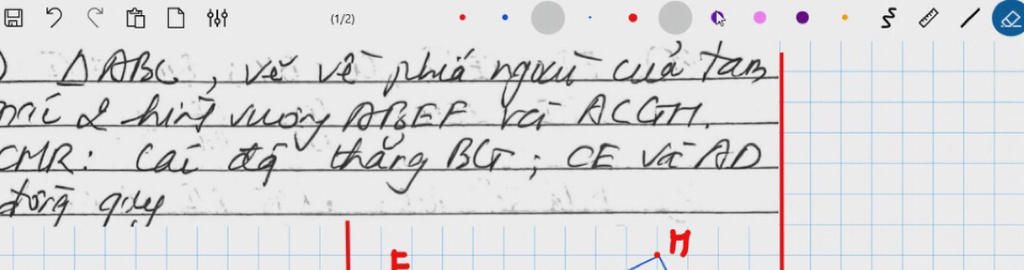 (1/2)
) ΔABC, vẽ về phía ngoài của tam
giác 2 hình vuông ABEF và ACGH.
CMR: Các đg thẳng BG; CE và AD
đồng quy
H
E